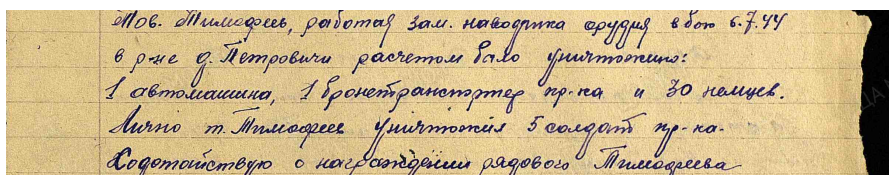 Тов. Тимофеев, работая зам. наводчика орудия в бою 6.7.44
в р-не д. Петровичи расчетом было уничтожено:
1 автомашина, 1 бронетранспортер пр-ка и 30 немцев.
Лично т. Тимофеев уничтожил 5 солдат пр-ка.
Ходотайствую о награждении рядового Тимофеева